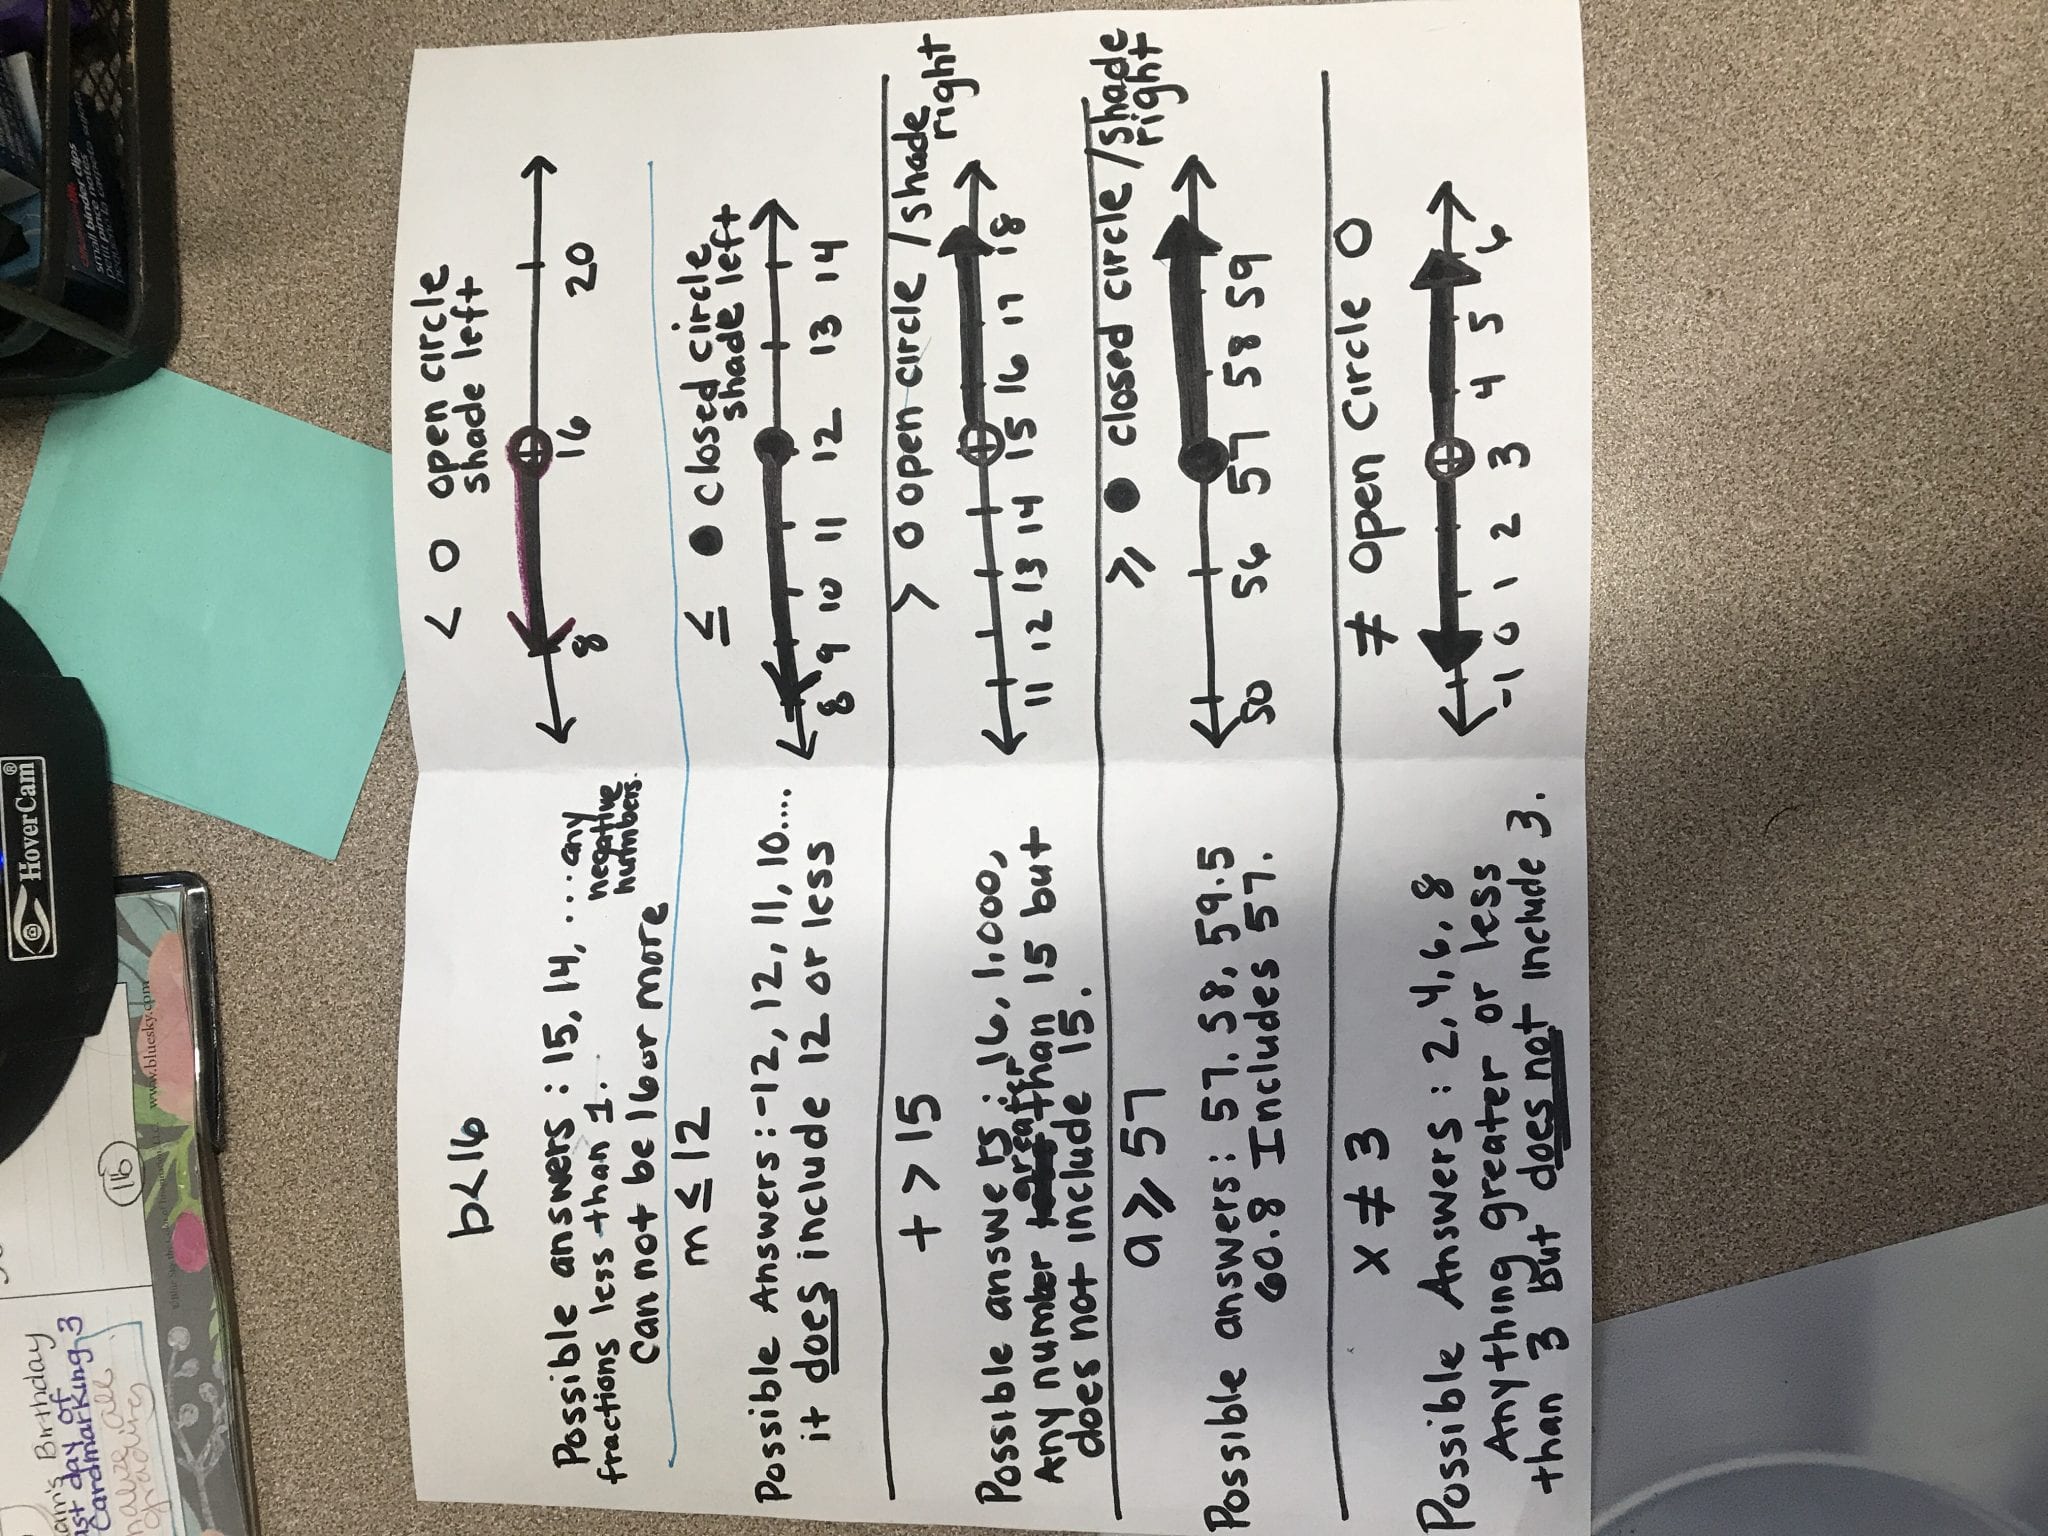 b<16
Possible answers: 15, 14, ... any
negative
numbers.
fractions less than 1.
Can not be 16 or more
< O open circle
shade left
8 16 20
m ≤ 12
Possible Answers: -12, 12, 11, 10....
it does include 12 or less
≤ ● closed circle
shade left
8 9 10 11 12 13 14
t > 15
Possible answers: 16, 1,000,
Any number greater than 15 but
does not include 15.
> O open circle / shade
right
11 12 13 14 15 16 17 18
a ≥ 57
Possible answers: 57. 58, 59.5
60.8 Includes 57.
≥ ● closed circle / shade
right
50 56 57 58 59
x ≠ 3
Possible Answers: 2, 4, 6, 8
Anything greater or less
than 3 but does not include 3.
≠ open circle O
-1 0 1 2 3 4 5 6
HoverCam®
www.bluesky.com
16
Birthday
day of
Cardmarking 3
grading
small binder clips